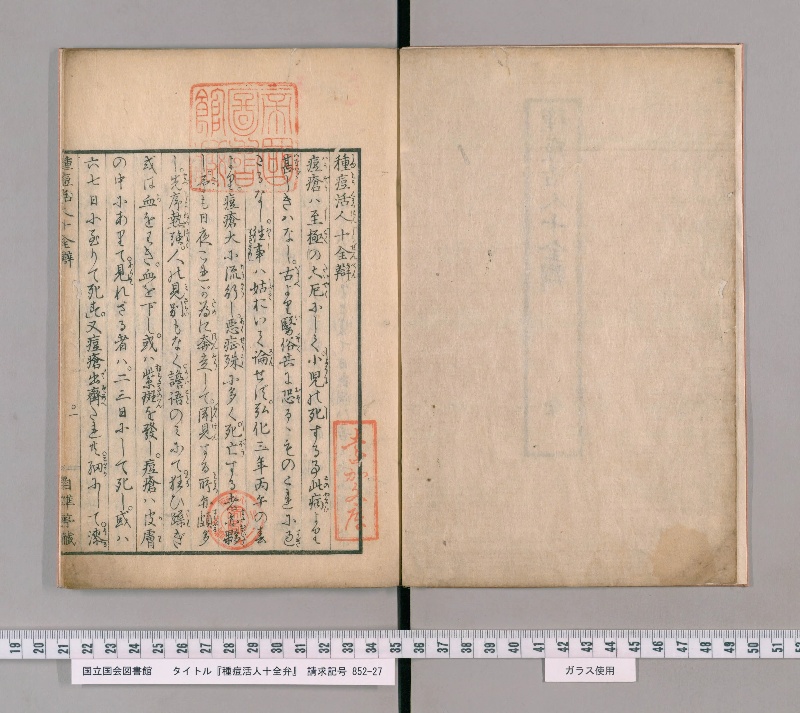 種痘活人十全辯
痘瘡ハ至極の大厄にして小児の死する事此病より
甚しきハなし。古より醫俗共に恐るゝものこれに過
きるなし。往事ハ姑おいて論せす。弘化三年丙午の春
より痘瘡大に流行し惡症殊に多く死亡する者
も日夜これか為に奔走して聞見する所頗多
し。先序熱强人の見別もなく譫語のミにて狂ひ躁き
或は血をはき。血を下し。或ハ紫斑を發し。痘瘡ハ皮膚
の中にありて見れさる者ハ。二三日にして死し。或ハ
六七日に至りて死す。又痘瘡出齊
種痘活人十全辯
19 20 21 22 23 24 25 26 27 28 29 30 31 32 33 34 35 36 37 38 39 40 41 42 43 44 45 46 47 48 49 50 51 52
国立国会図書館 タイトル『種痘活人十全弁』 請求記号 852-27
ガラス使用